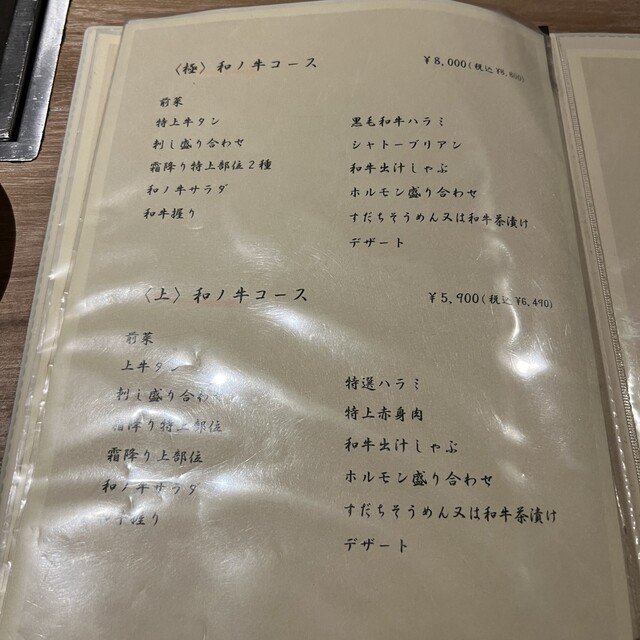 〈極〉和ノ牛コース ¥8,000(税込 ¥8,800)
前菜
特上牛タン
刺し盛り合わせ
霜降り特上部位2種
和ノ牛サラダ
和牛握り
黒毛和牛ハラミ
シャトーブリアン
和牛出汁しゃぶ
ホルモン盛り合わせ
すだちそうめん又は和牛茶漬け
デザート
〈上〉和ノ牛コース ¥5,900(税込 ¥6,490)
前菜
上牛タン
刺し盛り合わ
霜降り特上部位
霜降り上部位
和ノ牛サラダ
牛握り
特選ハラミ
特上赤身肉
和牛出汁しゃぶ
ホルモン盛り合わせ
すだちそうめん又は和牛茶漬け
デザート